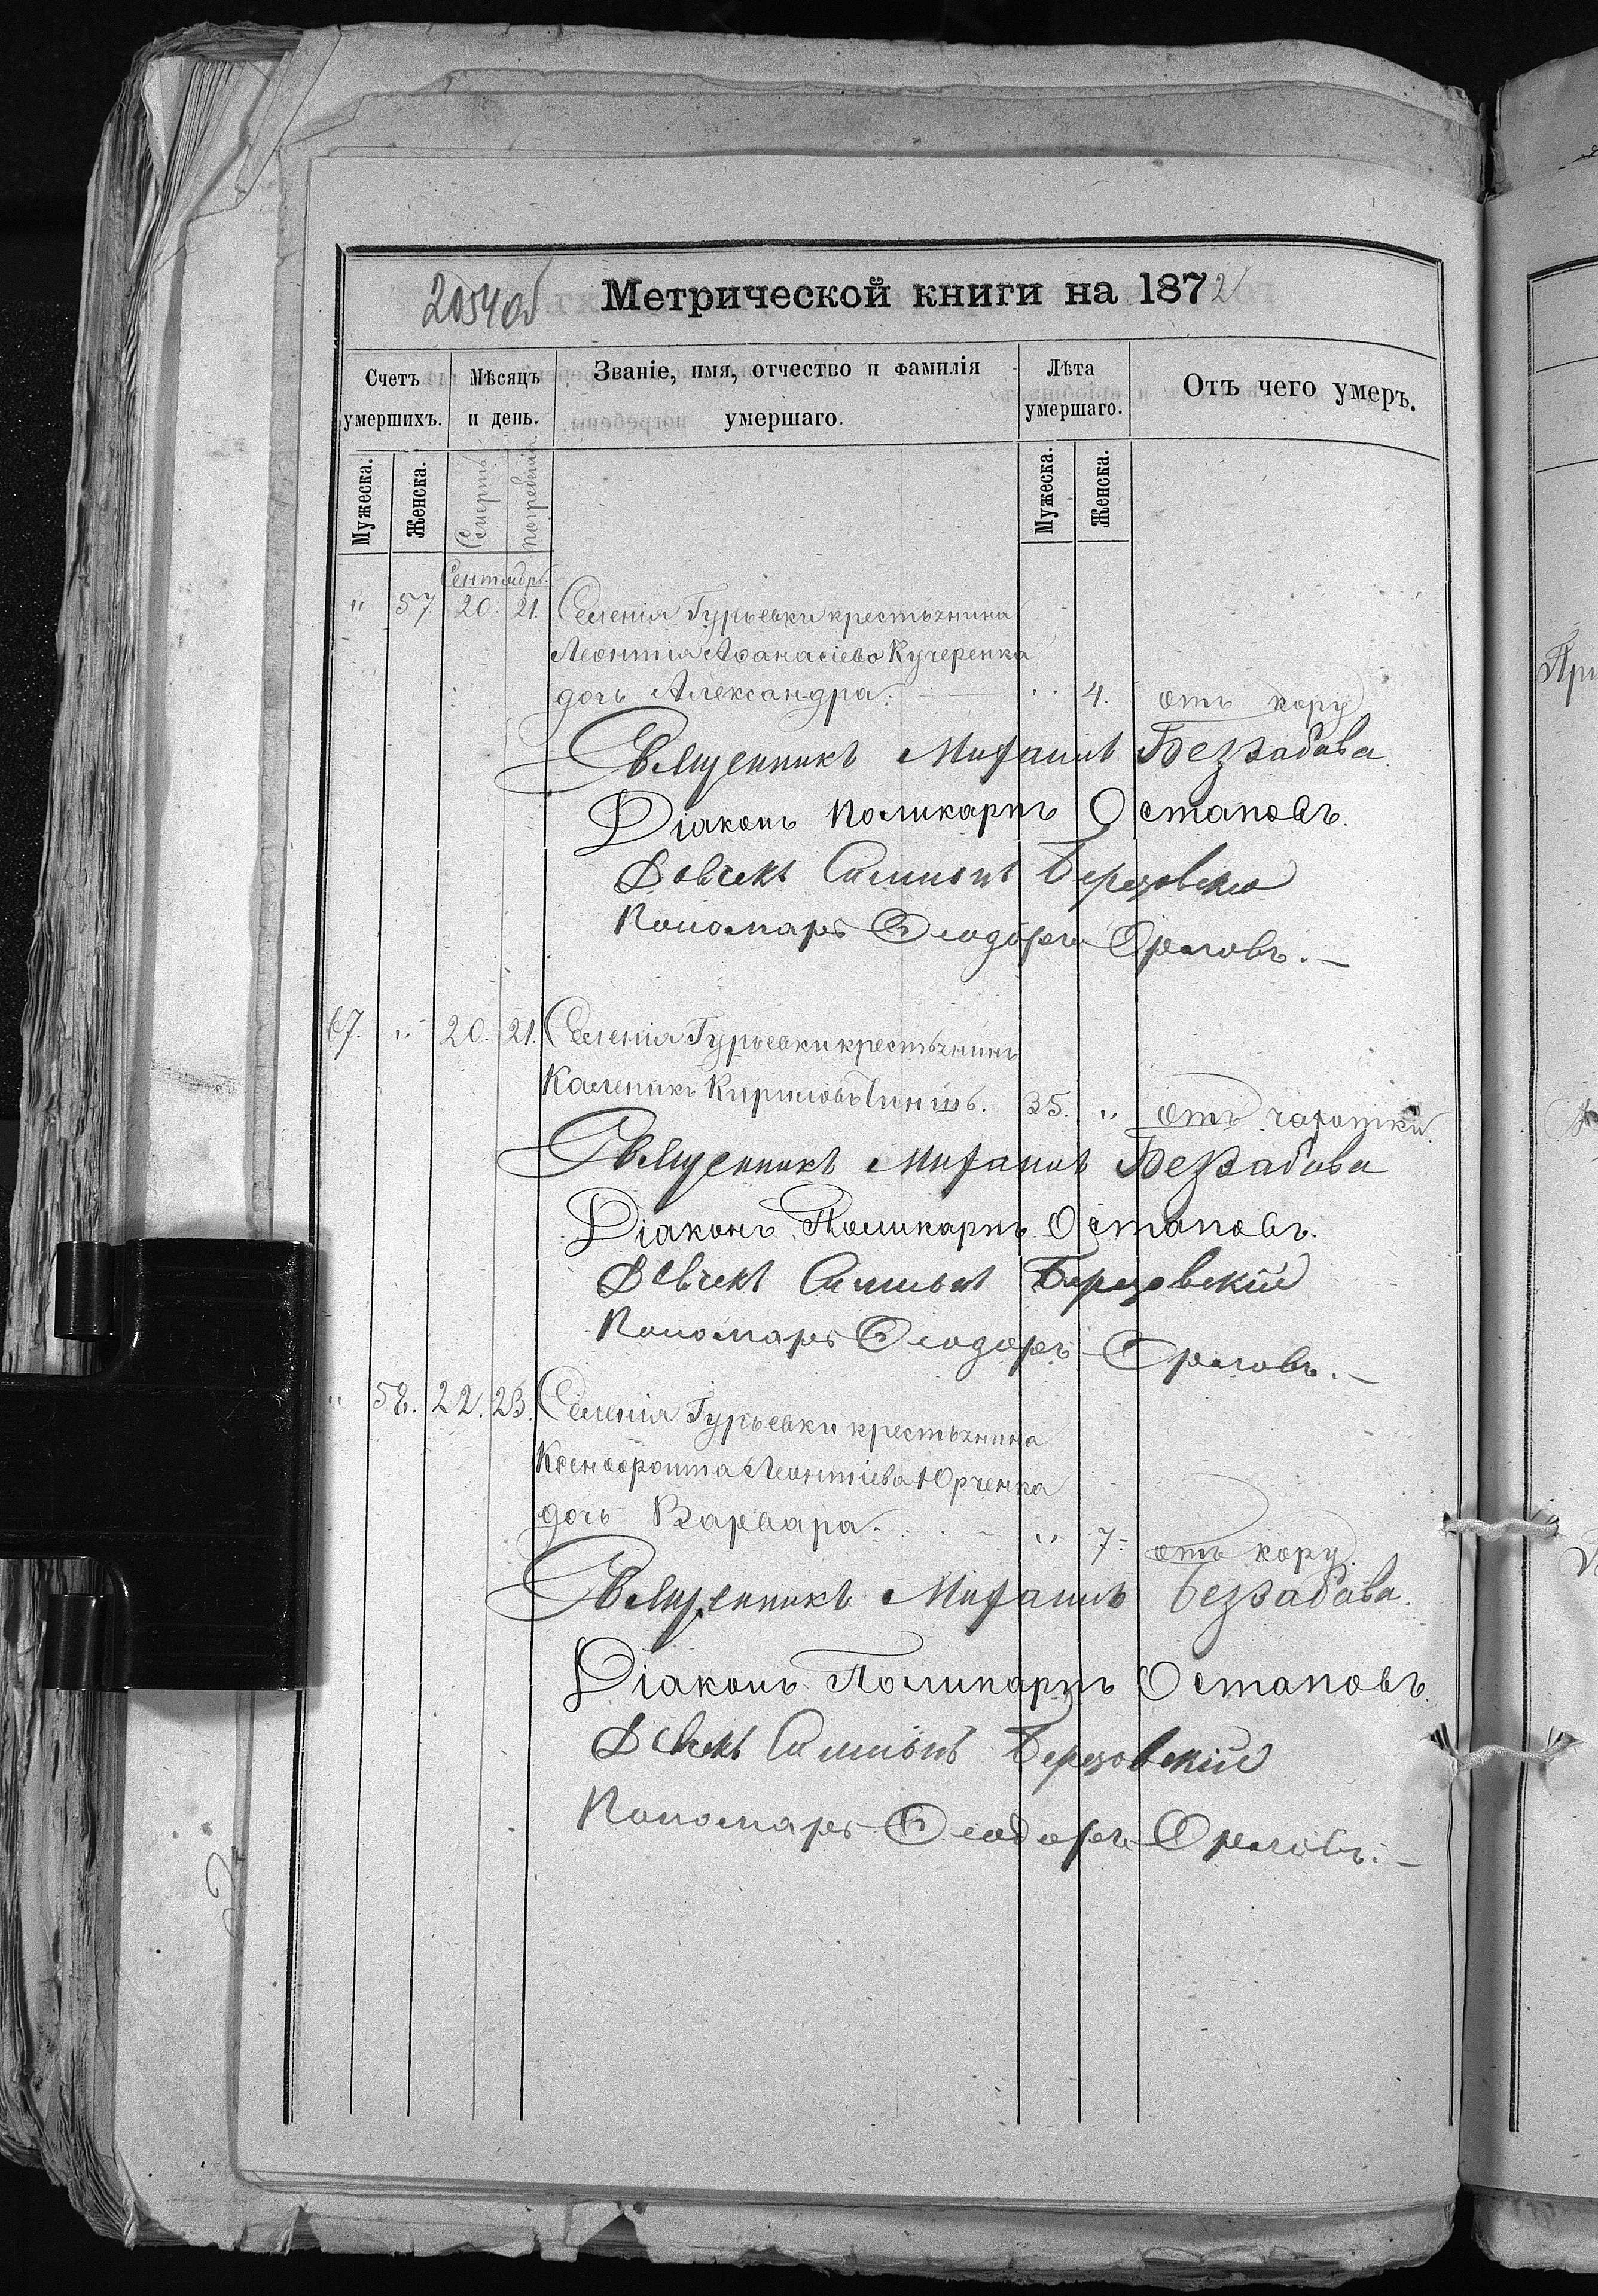 2054об
Метрической книги на 1872
Счетъ умершихъ.
Мѣсяцъ и день.
Званіе, имя, отчество и фамилія умершаго.
Лѣта умершаго.
Отъ чего умеръ.
Мужеска.
Женска.
Смерть
погребенія
Мужеска.
Женска.
Сентябрь.
" 57. 20. 21. Селенія Гурьевки крестьянина
Леонтія Аѳанасіево Кучеренка
дочь Александра. " 4. отъ кору
Священникъ Михаилъ Беззабава.
Діаконъ Поликарпъ Остаповъ.
Симионъ Березовскій
Пономарь Ѳеодоръ Орловъ.—
67. " 20. 21. Селенія Гурьевки крестьянинъ
Каленикъ Кириловъ 35. " отъ чахотки.
Священникъ Михаилъ Беззабава
Діаконъ Поликарпъ Остаповъ.
Симионъ Березовскій
Пономарь Ѳеодоръ Орловъ.—
" 58. 22. 23. Селенія Гурьевки крестьянина
Ксенофонта Леонтіева Юрченка
дочь Варвара. " 7- отъ кору.
Священникъ Михаилъ Беззабава.
Діаконъ Поликарпъ Остаповъ.
Симионъ Березовскій
Пономарь Ѳеодоръ Орловъ.—